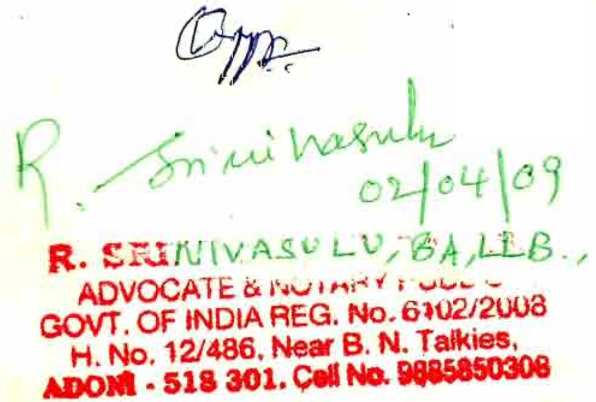 R. Srinivasulu
02/04/09
R. SRINIVASULU, BA, LLB.,
ADVOCATE & NOTARY PUBLIC
GOVT. OF INDIA REG. No. 6102/2008
H. No. 12/486, Near B. N. Talkies,
ADONI - 518 301. Cell No. 9885850308